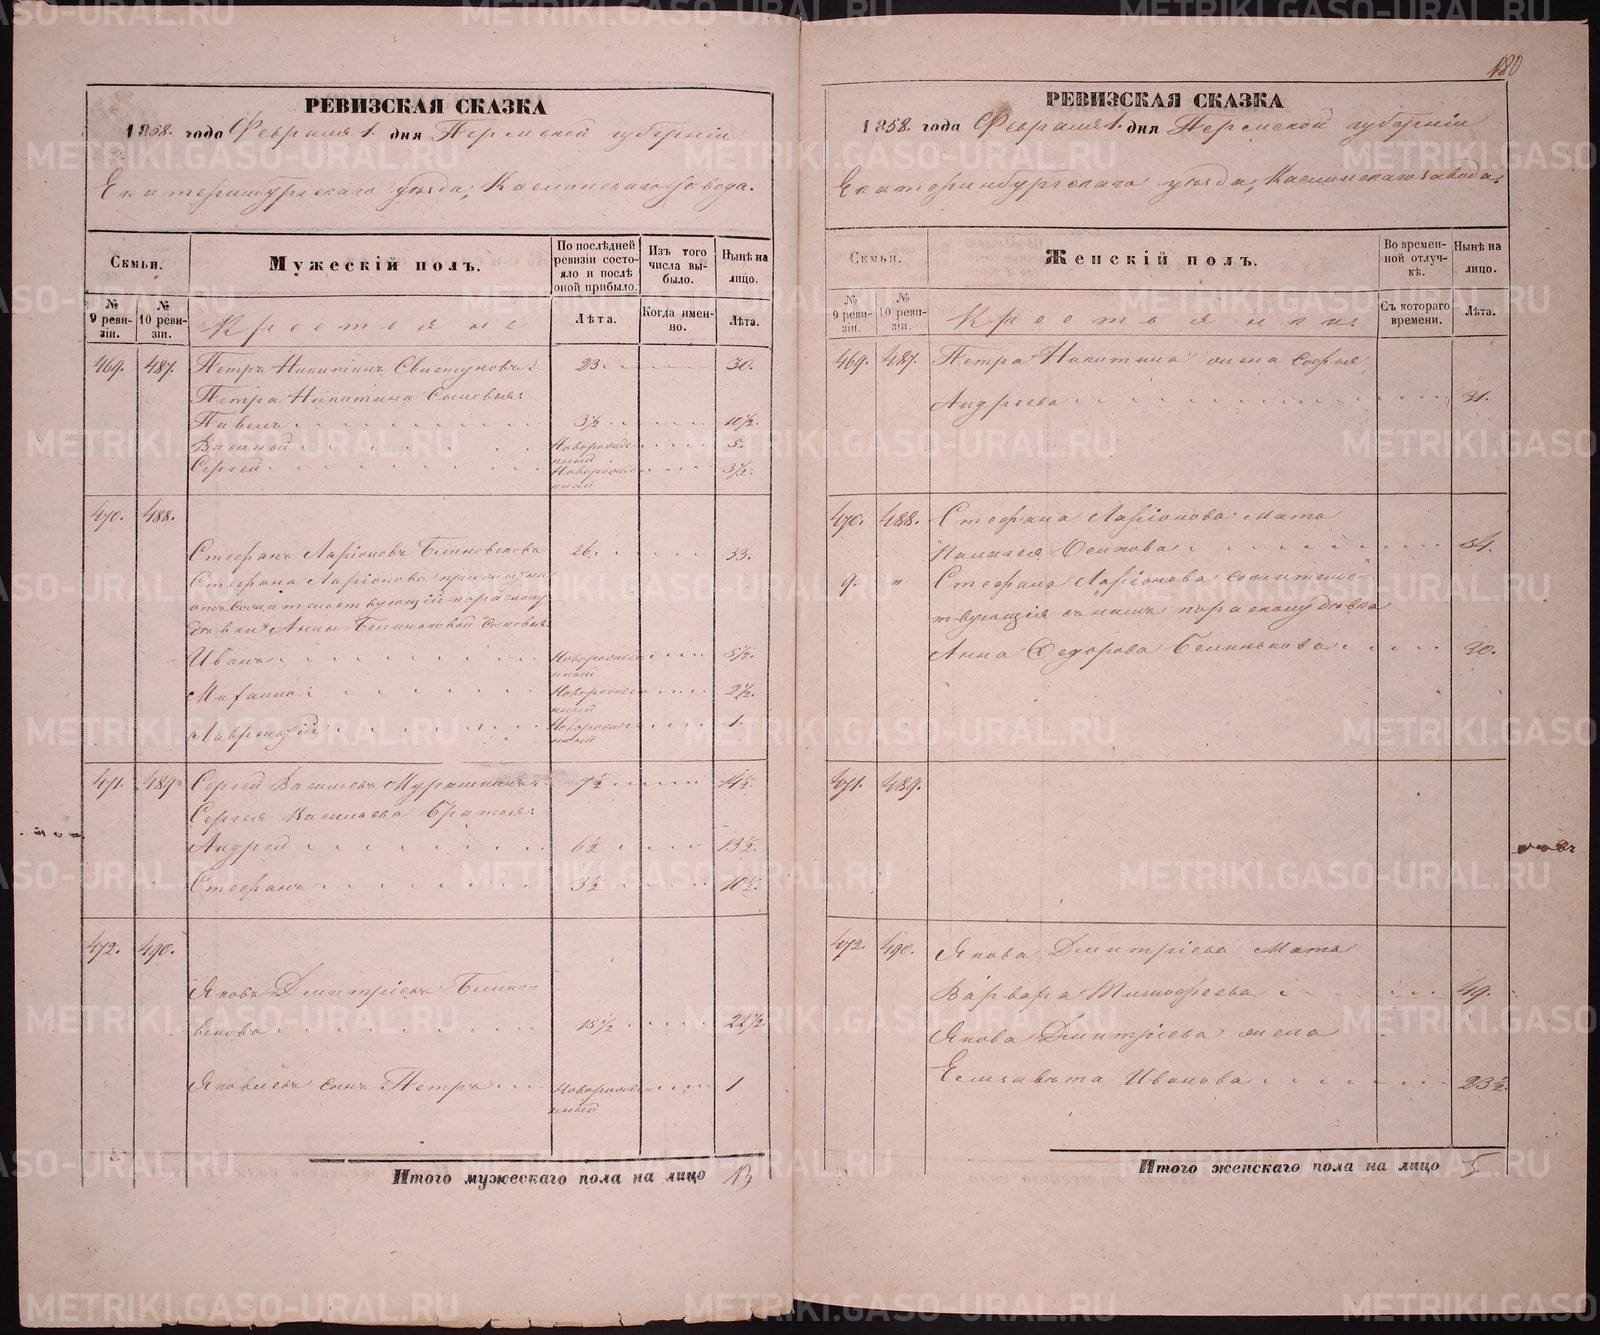 180
РЕВИЗСКАЯ СКАЗКА
1858. года Февраля 1. дня Пермской губернiи
Екатеринбургскаго уѣзда, Каслинскаго завода.
Семьи.
Мужескiй полъ.
По послѣдней ревизiи состояло и послѣ оной прибыло.
Изъ того числа выбыло.
Нынѣ на лицо.
№ 9 ревизiи.
№ 10 ревизiи.
Крестьяне
Лѣта.
Когда именно.
Лѣта.
469. 487. Петръ Никитинъ Свистуновъ 23. 30.
Петра Никитина Сыновья:
Павелъ 3½ 10½.
Василiй Новорожденный 5.
Сергей Новорожденный 3½.
470. 488.
Стефанъ Ларiоновъ 26. 33.
Стефана Ларiонова
Анны сыновья
Иванъ Новорожденный 5½.
Михаило Новорожденный 2½.
Лаврентiй Новорожденный 1.
471. 489. Сергей Васильевъ Мурашкинъ 7½ 14½.
Сергея Васильева Братья:
Андрей 6½ 13½.
Стефанъ 3½ 10½.
472. 490.
Яковъ Дмитрiевъ Блино-
вскова 15½ 22½.
Яковлевъ сынъ Петръ Новорожденный 1
Итого мужескаго пола на лицо 13
РЕВИЗСКАЯ СКАЗКА
1858. года Февраля 1. дня Пермской губернiи
Екатеринбургскаго уѣзда, Каслинскаго завода.
Семьи.
Женскiй полъ.
Во временной отлучкѣ.
Нынѣ на лицо.
№ 9 ревизiи.
№ 10 ревизiи.
Крестьянки.
Съ котораго времени.
Лѣта.
469. 487. Петра Никитина жена Софья
Андреева 31.
470. 488. Стефана Ларiонова Мать
Палагея Осипова 54.
9. " Стефана Ларiонова сожительс-
твующiя съ нимъ по расколу девка
Анна Федорова 30.
471. 489.
472. 490. Якова Дмитрiева Мать
Варвара Тимофеева 49.
Якова Дмитрiева жена
Елизавѣта Иванова 23½
Итого женскаго пола на лицо 5
METRIKI.GASO-URAL.RU